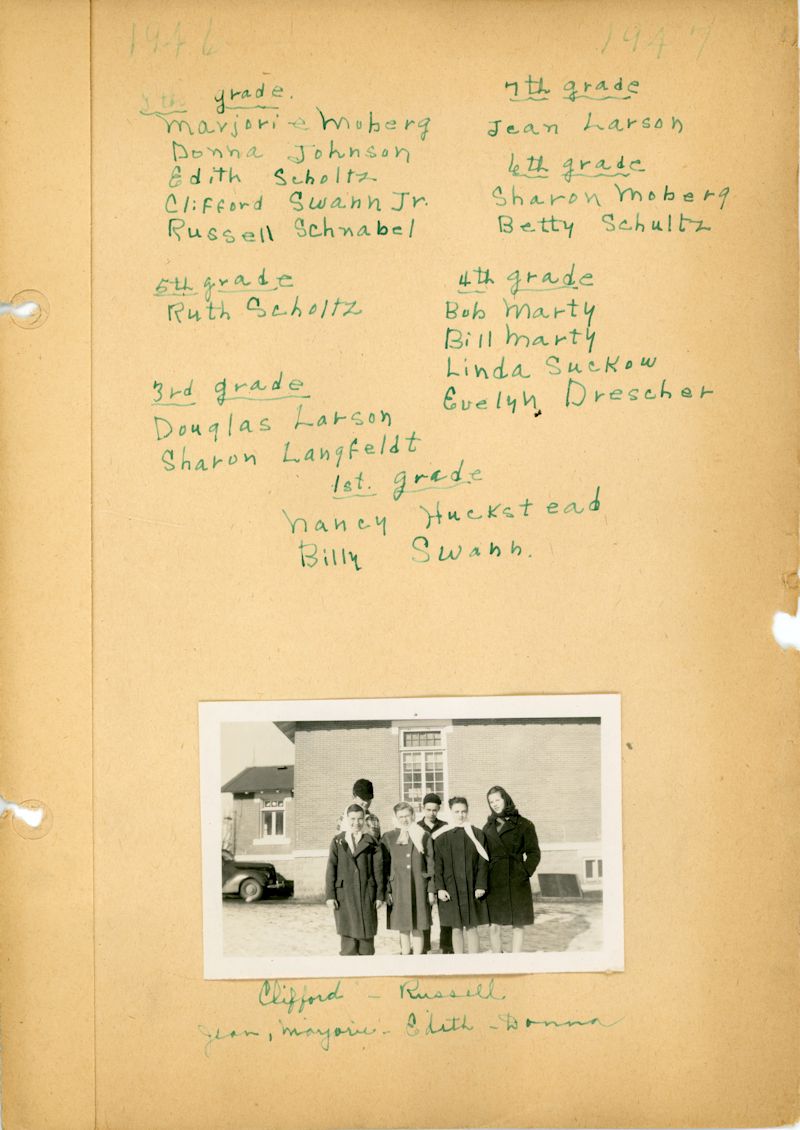 1946 1947
8th grade.
Marjorie Moberg
Donna Johnson
Edith Scholtz
Clifford Swann Jr.
Russell Schnabel
7th grade
Jean Larson
6th grade
Sharon Moberg
Betty Schultz
5th grade
Ruth Scholtz
4th grade
Bob Marty
Bill Marty
Linda Suckow
Evelyn Drescher
3rd grade
Douglas Larson
Sharon Langfeldt
1st. grade
Nancy Huckstead
Billy Swann.
Clifford - Russell
Jean, Marjorie - Edith - Donna